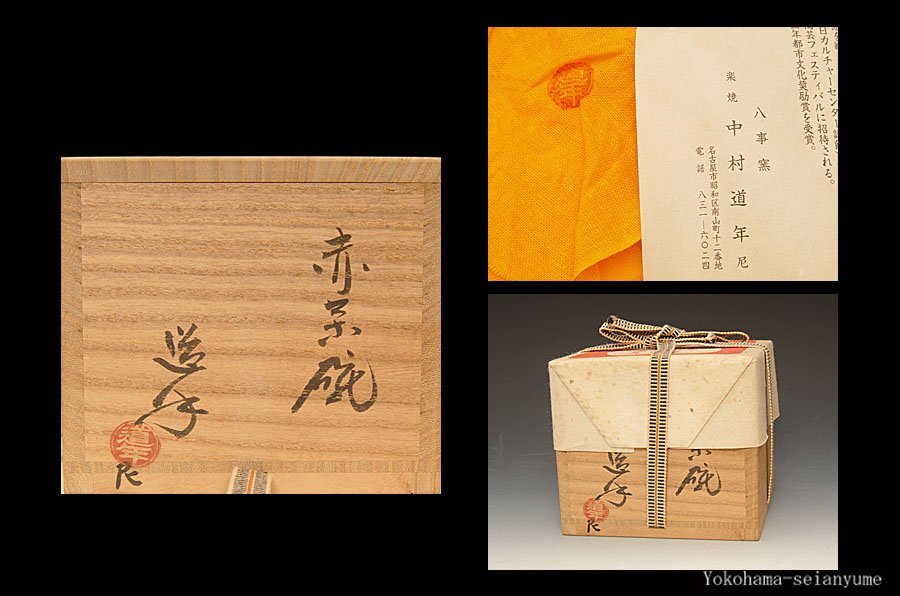 赤茶碗
道年
道年
尼
日カルチャーセンター
陶芸フェスティバルに招待される。
年都市文化奨励賞を受賞。
八事窯
楽焼 中村道年 尼
名古屋市昭和区南山町十二番地
電話 八三一―六〇二四
茶碗
道年
道年
尼
Yokohama-seianyume